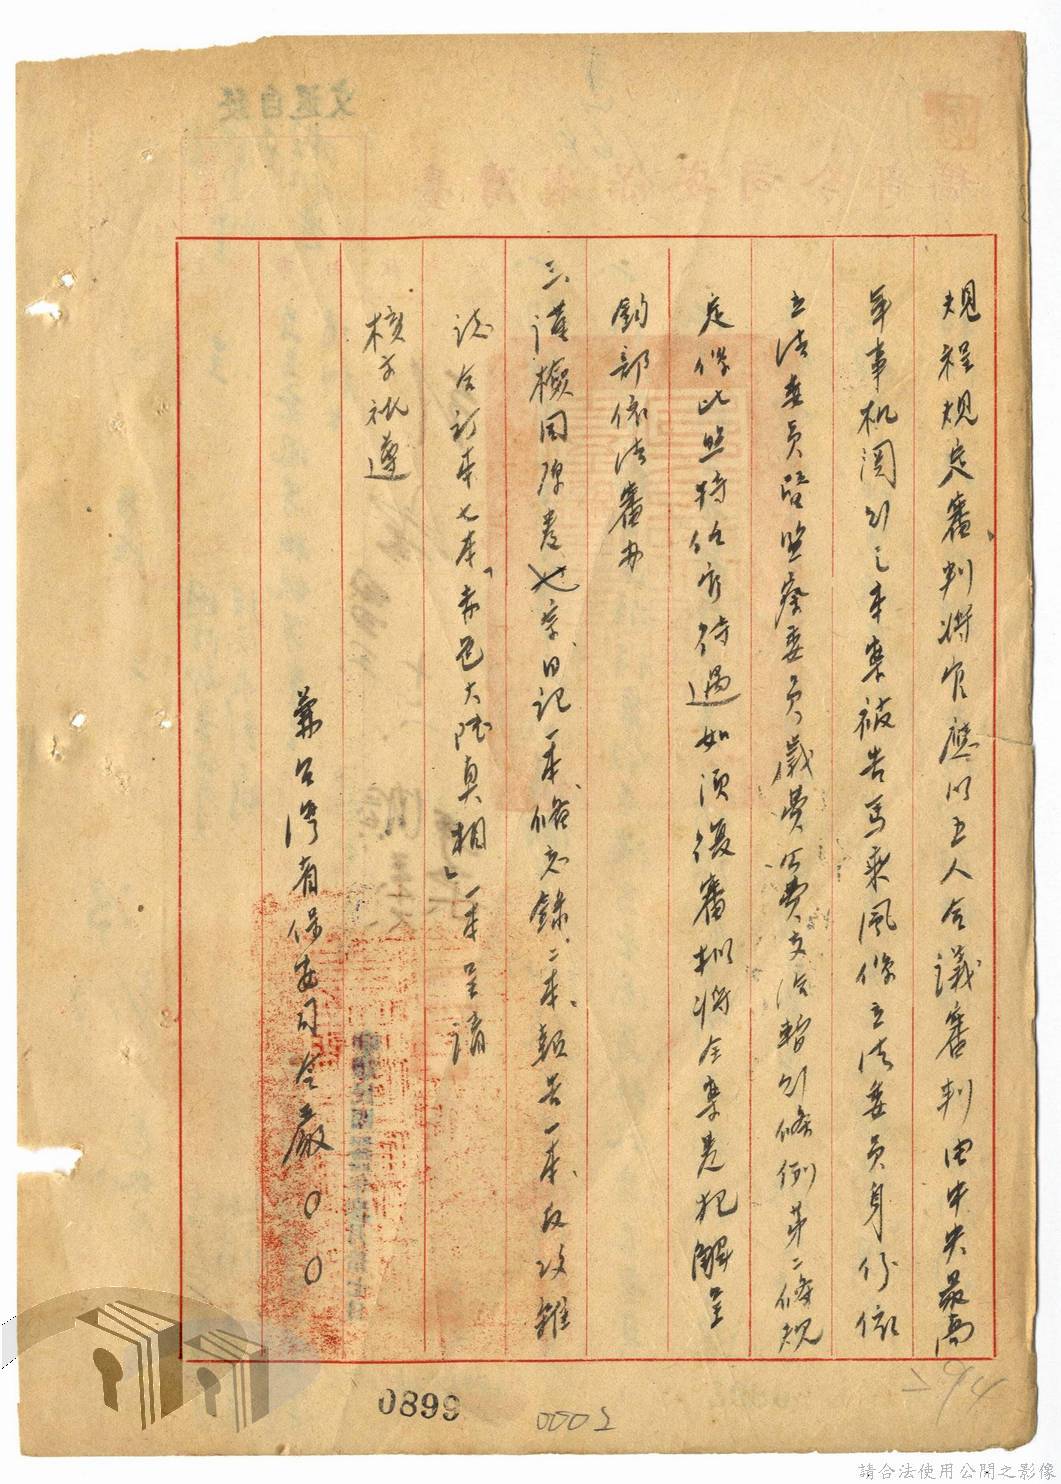 規程規定審判將官應以五人合議審判由中央最高
軍事机関行之本案被告馬乘風係立法委員身份依
立法委員暨監察委員歲費公費支給暫行條例第二條規
定係比照特任官待遇如須復審拟將全案卷犯解呈
鈞部依法審办
三、謹檢同原卷七宗、日記一本、備忘錄二本、報告一本、反攻雜
誌合訂本七本、「赤色大陸真相」一本呈請
核示祇遵
兼台灣省保安司令嚴〇〇
0899
0002
294
請合法使用公開之影像